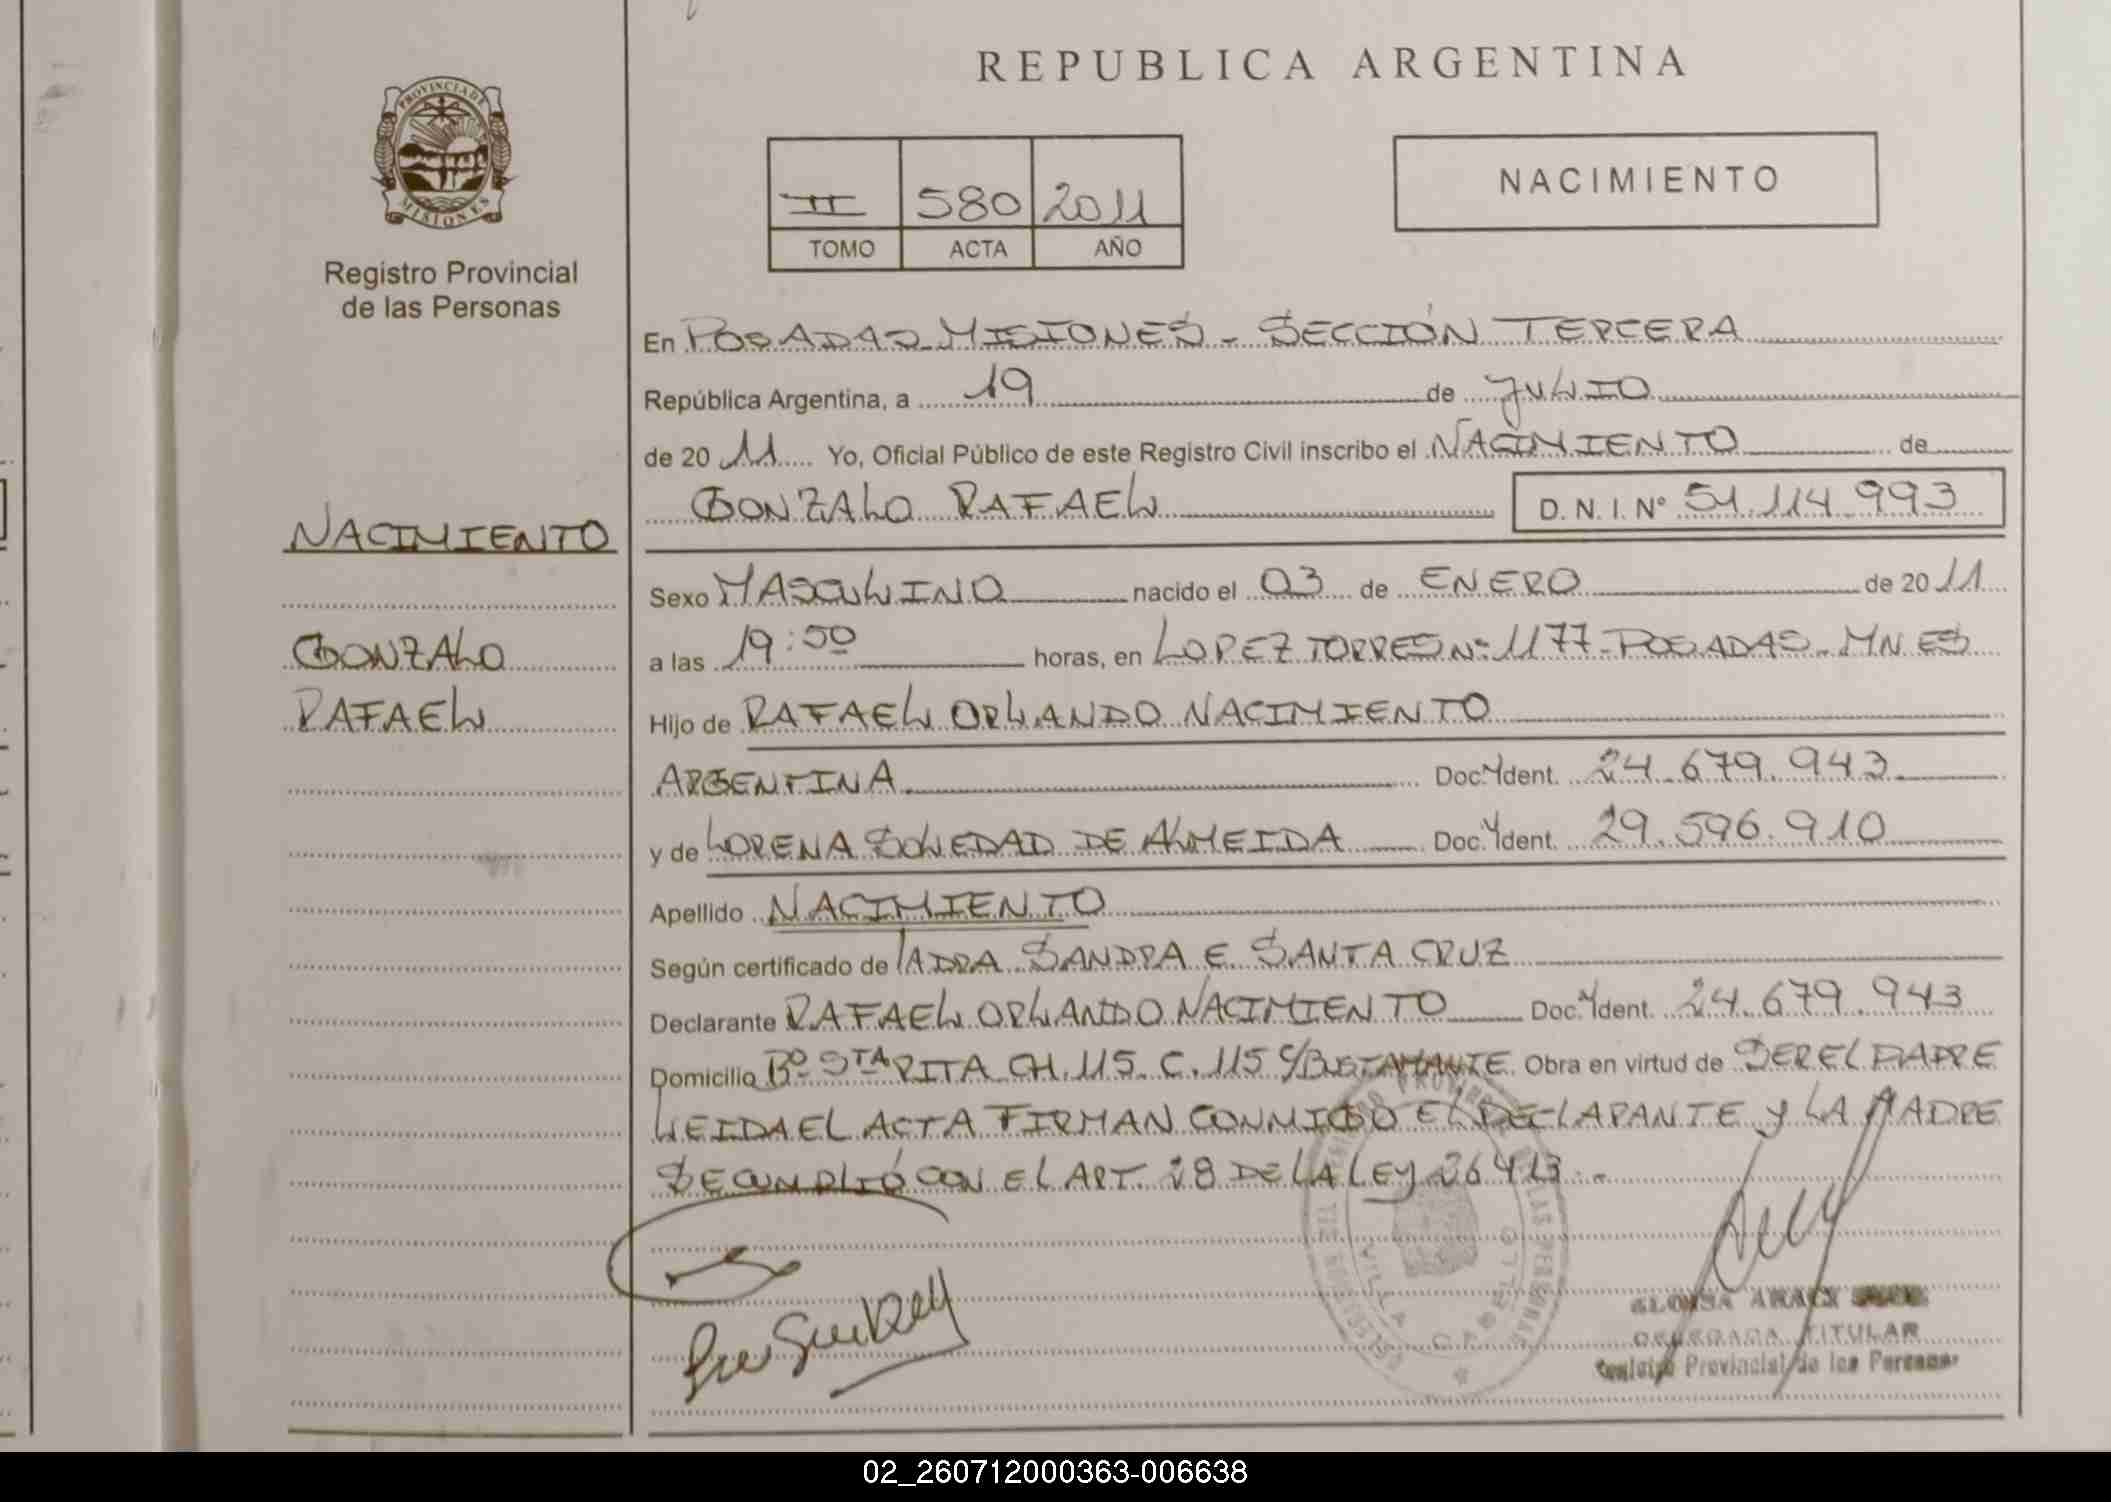 REPUBLICA ARGENTINA
PROVINCIA DE
MISIONES
Registro Provincial
de las Personas
II 580 2011
TOMO ACTA AÑO
NACIMIENTO
En POSADAS MISIONES - SECCIÓN TERCERA
República Argentina, a 19 de JULIO
de 20 11 Yo, Oficial Público de este Registro Civil inscribo el NACIMIENTO de
GONZALO RAFAEL D. N. I. Nº 51.114.993
NACIMIENTO
GONZALO
RAFAEL
Sexo MASCULINO nacido el 03 de ENERO de 20 11
a las 19:50 horas, en LOPEZ TORRES Nº 1177 - POSADAS - MNES
Hijo de RAFAEL ORLANDO NACIMIENTO
ARGENTINA Doc. Ident. 24.679.943
y de LORENA SOLEDAD DE ALMEIDA Doc. Ident. 29.596.910
Apellido NACIMIENTO
Según certificado de SANDRA E. SANTA CRUZ
Declarante RAFAEL ORLANDO NACIMIENTO Doc. Ident. 24.679.943
Domicilio Bº STA RITA CH. 115 C. 115 Obra en virtud de SER EL PADRE
LEIDA EL ACTA FIRMAN CONMIGO EL DECLARANTE Y LA MADRE
SE CUMPLIÓ CON EL ART. 28 DE LA LEY 26413.-
VILLA CABELLO
TITULAR
Provincial de las Personas
02_260712000363-006638